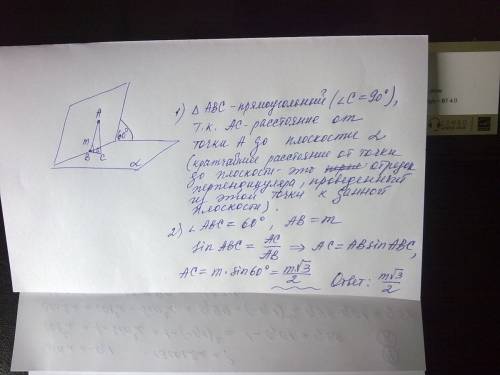 1) △ ABC - прямоугольный (∠C = 90°),
т.к. AC - расстояние от
точки A до плоскости α
(кратчайшее расстояние от точки
до плоскости - это отрезок
перпендикуляра, проведенный
из этой точки к данной
плоскости).
2) ∠ ABC = 60°, AB = m
sin ABC = AC/AB ⇒ AC = AB sin ABC,
AC = m · sin 60° = m√3/2 Ответ: m√3/2
A
m
60°
B C
α